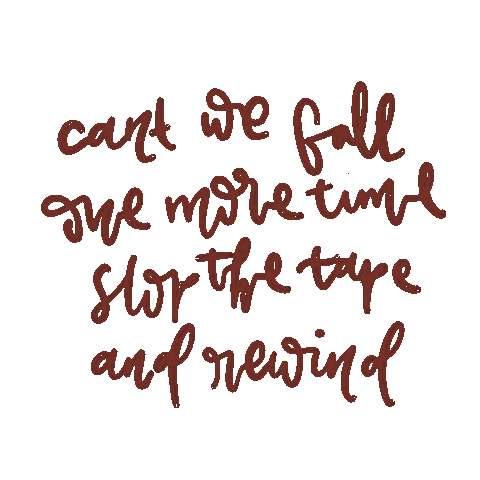 cant we fall
one more time
stop the tape
and rewind